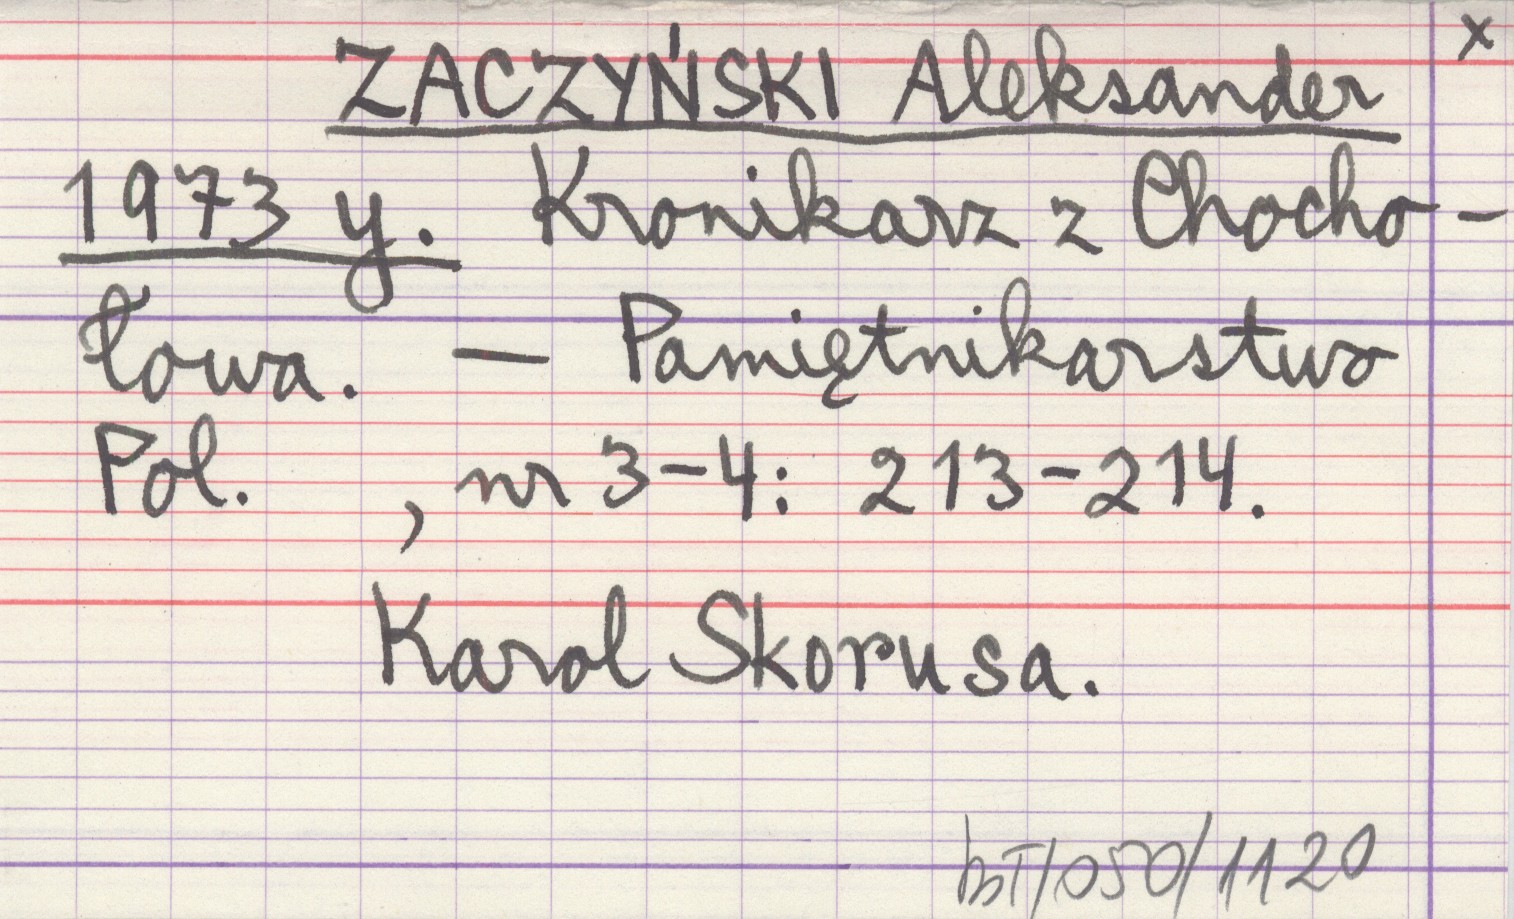 x
ZACZYŃSKI Aleksander
1973 y. Kronikarz z Chocho-
łowa. — Pamiętnikarstwo
Pol. , nr 3-4: 213-214.
Karol Skorusa.
bT/050/1120